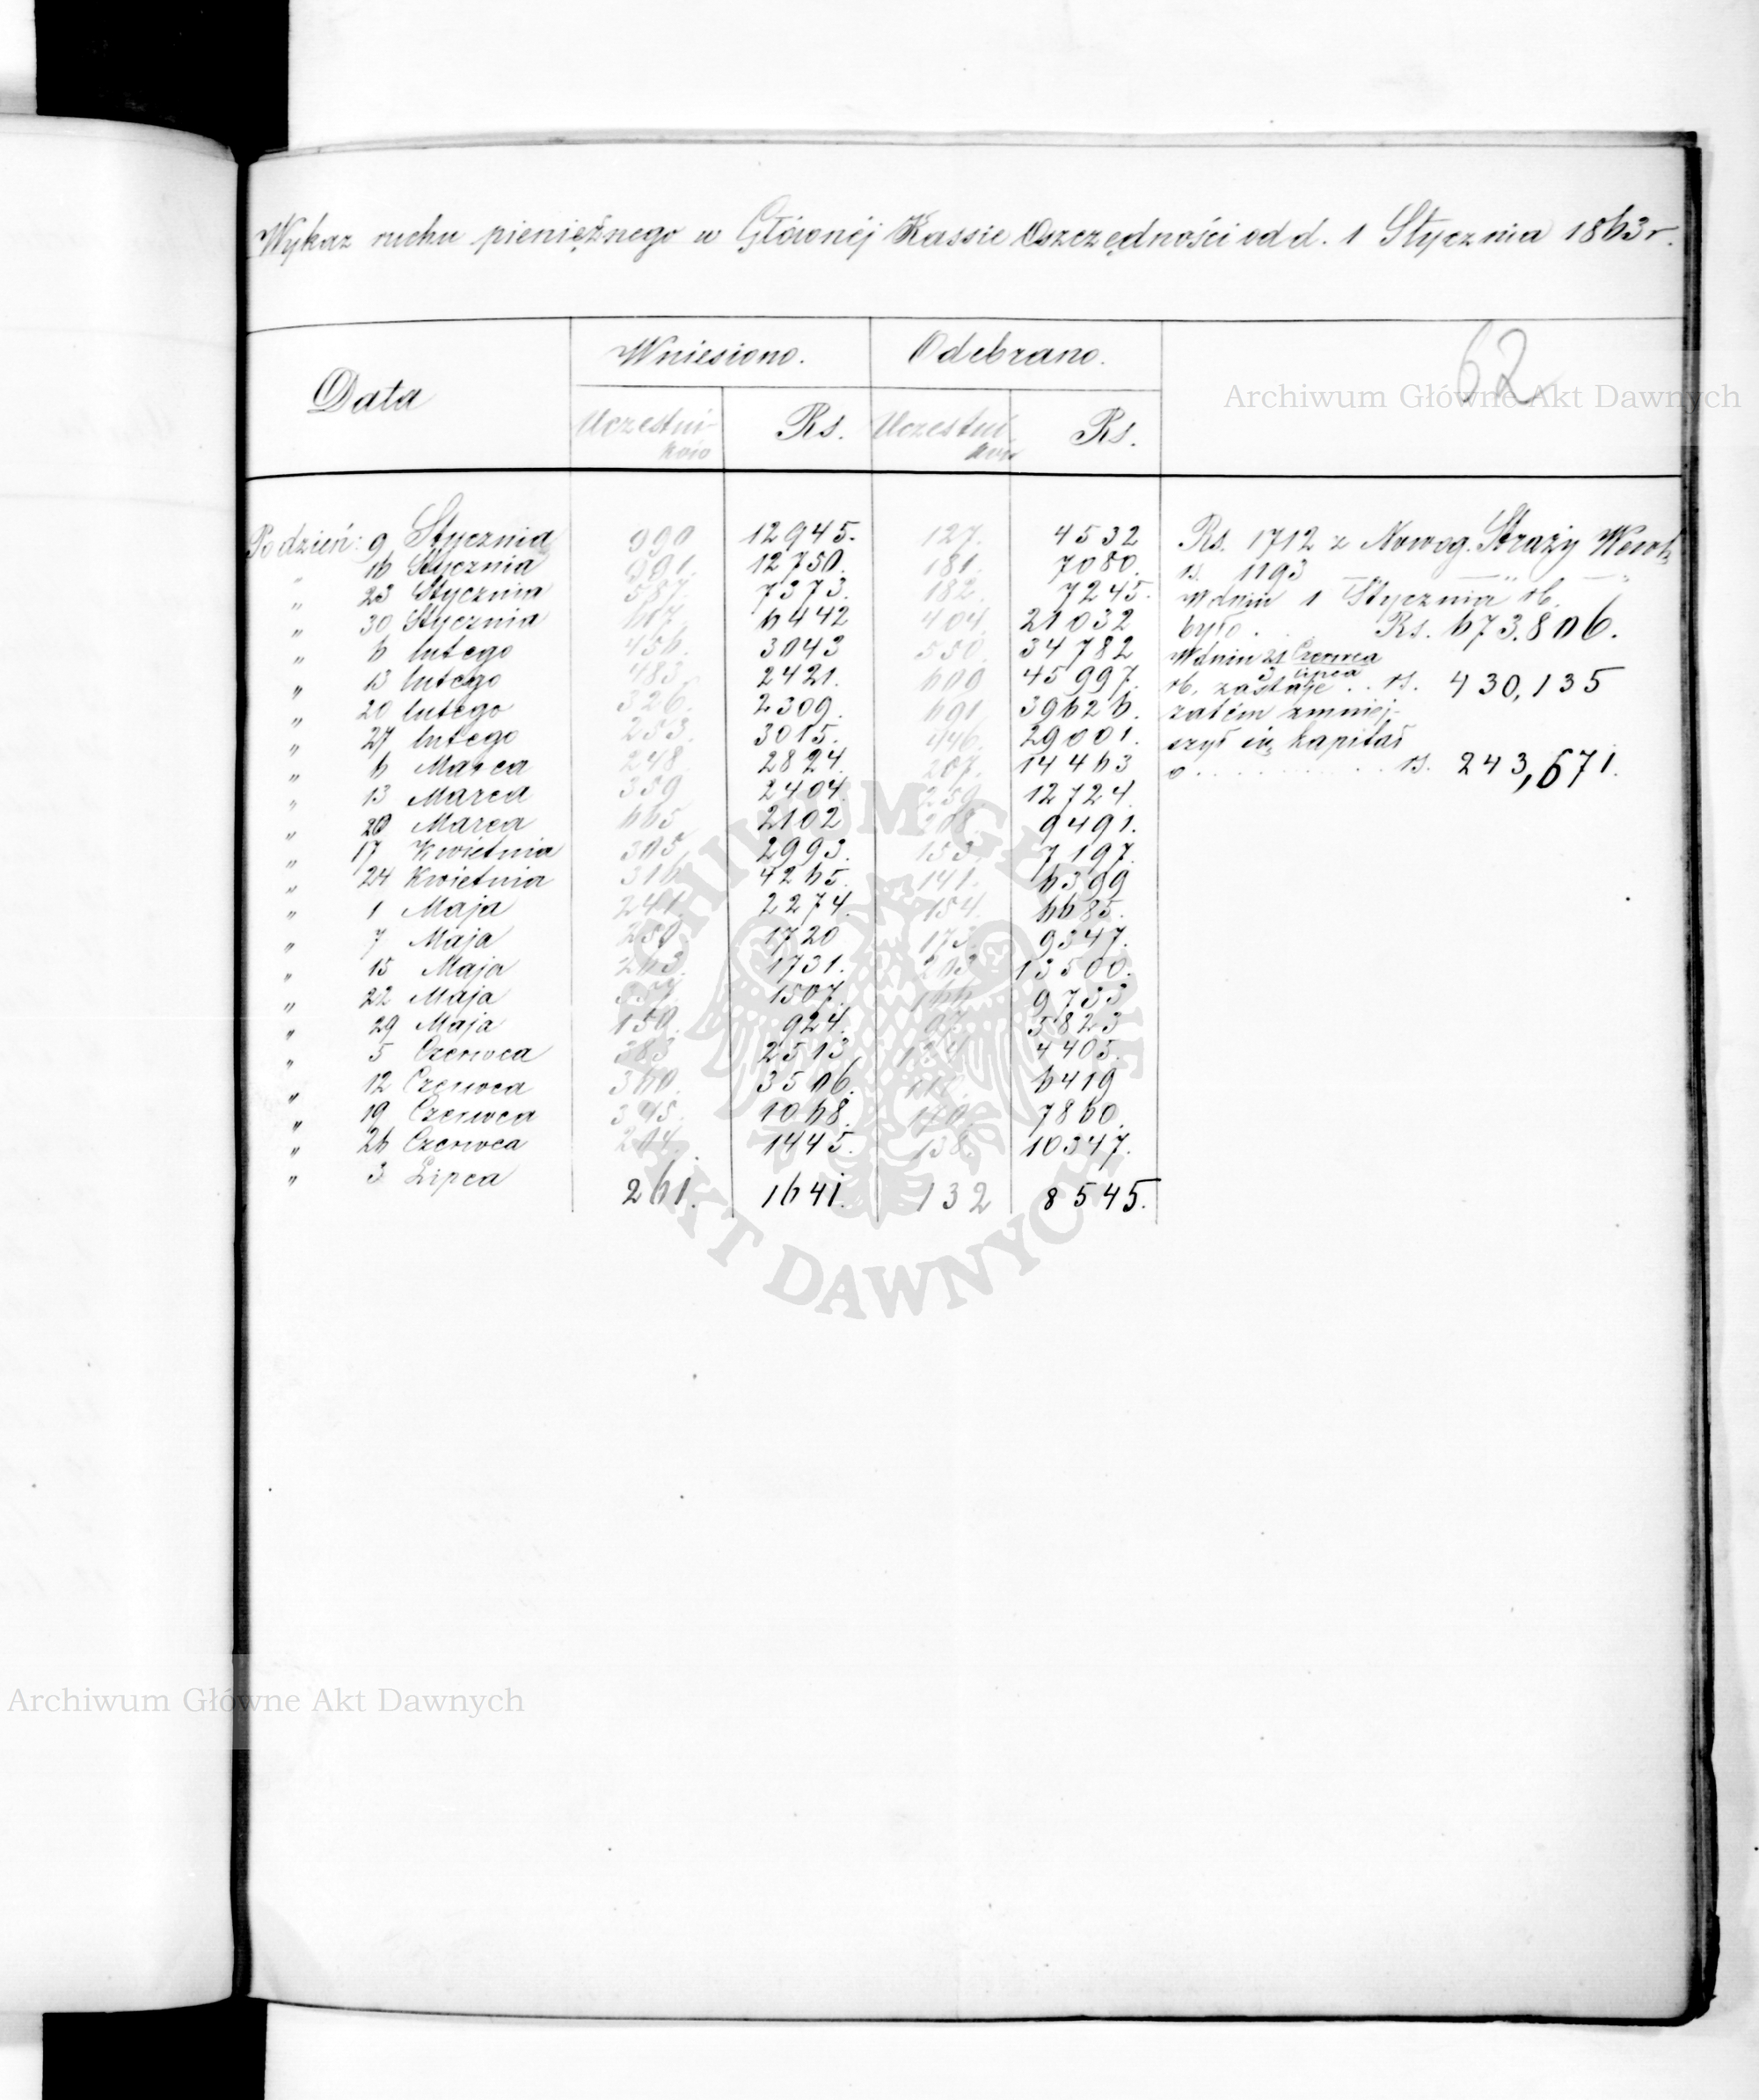 Wykaz ruchu pieniężnego w Głównéj Kassie Oszczędności od d. 1 Stycznia 1863 r.
62
Data Wniesiono. Odebrano.
Uczestników Rs. Uczestników Rs.
Po dzień: 9 Stycznia 990 12945. 127. 4532 Rs. 1712 z Nowog. Straży
" 16 Stycznia 991. 12750. 181. 7080. rs. 1193 — " —
" 23 Stycznia 587. 7373. 182. 7245. W dniu 1 Stycznia rb.
" 30 Stycznia 6442 404. 21032 było . Rs. 673.806.
" 6 lutego 456. 3043 550. 34782 W dniu 21 Czerwca
3 Lipca
" 13 lutego 483. 2421. 609 45997. rb. zostaje . . rs. 430,135
" 20 lutego 326. 2309. 691 39626. zatém zmniej-
" 27 lutego 253. 3015. 446. 29001. szył się kapitał
" 6 Marca 248 2824. 207. 14463 o . . . . . . . . . . rs. 243,671.
" 13 Marca 339 2404. 259. 12724.
" 20 Marca 665 2102 9491.
" 17 Kwietnia 305 2993. 153. 7197.
" 24 Kwietnia 316 4265. 141. 6399
" 1 Maja 241. 2274. 154. 6685.
" 7 Maja 250. 1720 173. 9347.
" 15 Maja 263. 1731. 203 13500.
" 22 Maja 357. 1507. 166 9733
" 29 Maja 150. 924. 97. 5823
" 5 Czerwca 383 2513 4405.
" 12 Czerwca 360. 3506. 6419
" 19 Czerwca 345. 1068. 170. 7860.
" 26 Czerwca 204. 1445. 138. 10347.
" 3 Lipca 261. 1641. 132 8545.
Archiwum Główne Akt Dawnych
ARCHIWUM GŁÓWNE AKT DAWNYCH
Archiwum Główne Akt Dawnych